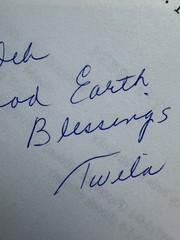 Deb
Good Earth
Blessings
Twila